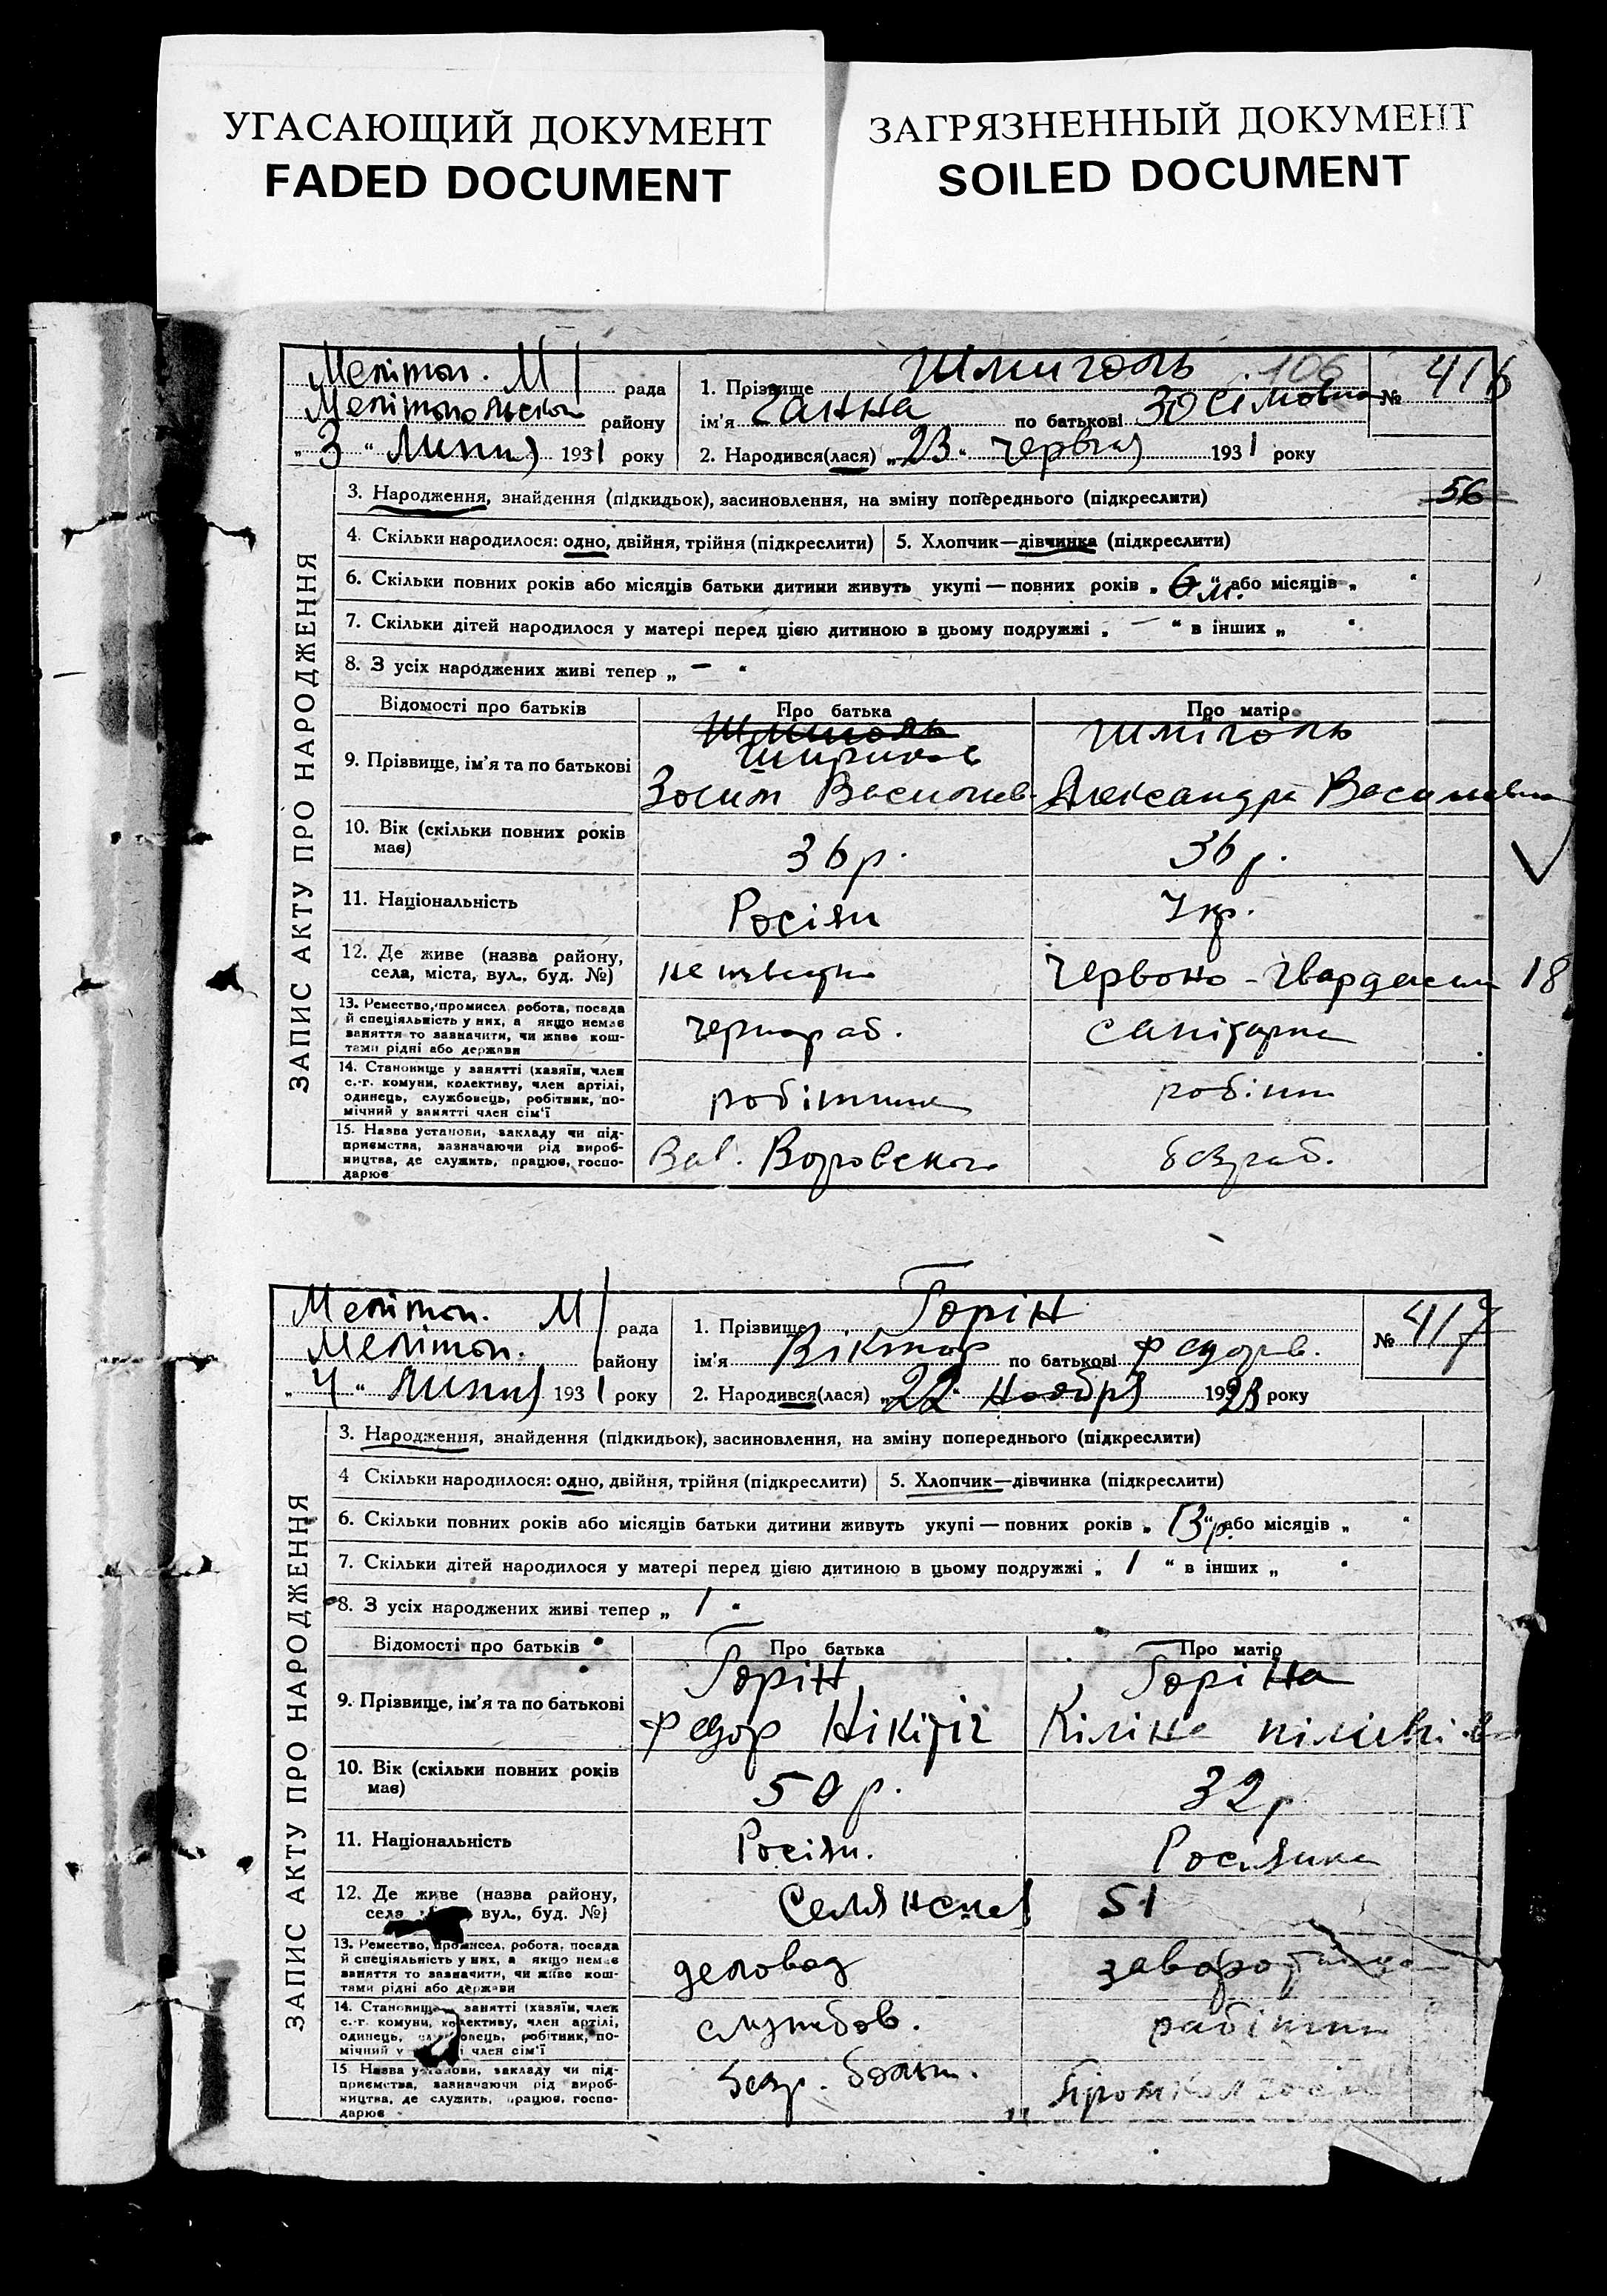 УГАСАЮЩИЙ ДОКУМЕНТ
FADED DOCUMENT
ЗАГРЯЗНЕННЫЙ ДОКУМЕНТ
SOILED DOCUMENT
ЗАПИС АКТУ ПРО НАРОДЖЕННЯ
Мелітоп. М рада
району
„3“ Липня 1931 року
1. Прізвище Шмиголь 106 № 416
ім'я Ганна по батькові Зосімовна
2. Народився(лася) „23“ червня 1931 року
3. Народження, знайдення (підкидьок), засиновлення, на зміну попереднього (підкреслити) 56
4. Скільки народилося: одно, двійня, трійня (підкреслити) 5. Хлопчик—дівчинка (підкреслити)
6. Скільки повних років або місяців батьки дитини живуть укупі — повних років „ 6 м. “ або місяців „ “
7. Скільки дітей народилося у матері перед цією дитиною в цьому подружжі „ — “ в інших „ “
8. З усіх народжених живі тепер „ — “
Відомості про батьків Про батька Про матір
9. Прізвище, ім'я та по батькові Шмиголь Шміголь
Зосим Василев. Александра Васильевна
10. Вік (скільки повних років має) 36 р. 36 р.
11. Національність Росіян Укр.
12. Де живе (назва району, села, міста, вул., буд. №) Червоно-Гвардейськ 18
13. Ремество, промисел, робота, посада й спеціяльність у них, а якщо немає заняття то зазначити, чи живе коштами рідні або держави чернораб. санітарка
14. Становище у занятті (хазяїн, член с.-г. комуни, колективу, член артілі, одинець, службовець, робітник, помічний у занятті член сім'ї робітник робітн
15. Назва установи, закладу чи підприємства, зазначаючи рід виробництва, де служить, працює, господарює Зав. Воровского безраб.
ЗАПИС АКТУ ПРО НАРОДЖЕННЯ
Мелітоп. М рада
Мелітоп. району
„4“ Липня 1931 року
1. Прізвище Горін № 417
ім'я Віктор по батькові Федоров.
2. Народився(лася) „22“ Ноября 1923 року
3. Народження, знайдення (підкидьок), засиновлення, на зміну попереднього (підкреслити)
4 Скільки народилося: одно, двійня, трійня (підкреслити) 5. Хлопчик—дівчинка (підкреслити)
6. Скільки повних років або місяців батьки дитини живуть укупі — повних років „ 13 р. “ або місяців „ “
7. Скільки дітей народилося у матері перед цією дитиною в цьому подружжі „ 1 “ в інших „ “
8. З усіх народжених живі тепер „ 1 “
Відомості про батьків Про батька Про матір
9. Прізвище, ім'я та по батькові Горін Горіна
Федор Нікітіч Кіліна
10. Вік (скільки повних років має) 50 р. 32 р
11. Національність Росіян. Росиянка
12. Де живе (назва району, села вул., буд. №) Селянская 51
13. Ремество, промисел, робота, посада й спеціяльність у них, а якщо немає заняття то зазначити, чи живе коштами рідні або держави деловод
14. Становище занятті (хазяїн, член с.-г. комуни, колективу, член артілі, одинець, службовець, робітник, помічний у член сім'ї службов. робітни
15 Назва установи, закладу чи підприємства, зазначаючи рід виробництва, де служить, працює, господарює